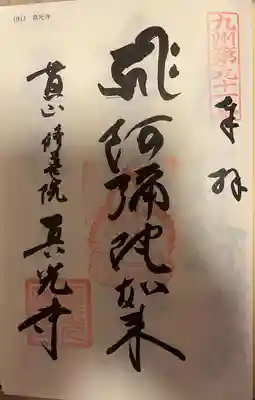 (91) 真光寺
九州第九十一
奉拝
阿彌陀如来
山 修善院 真光寺